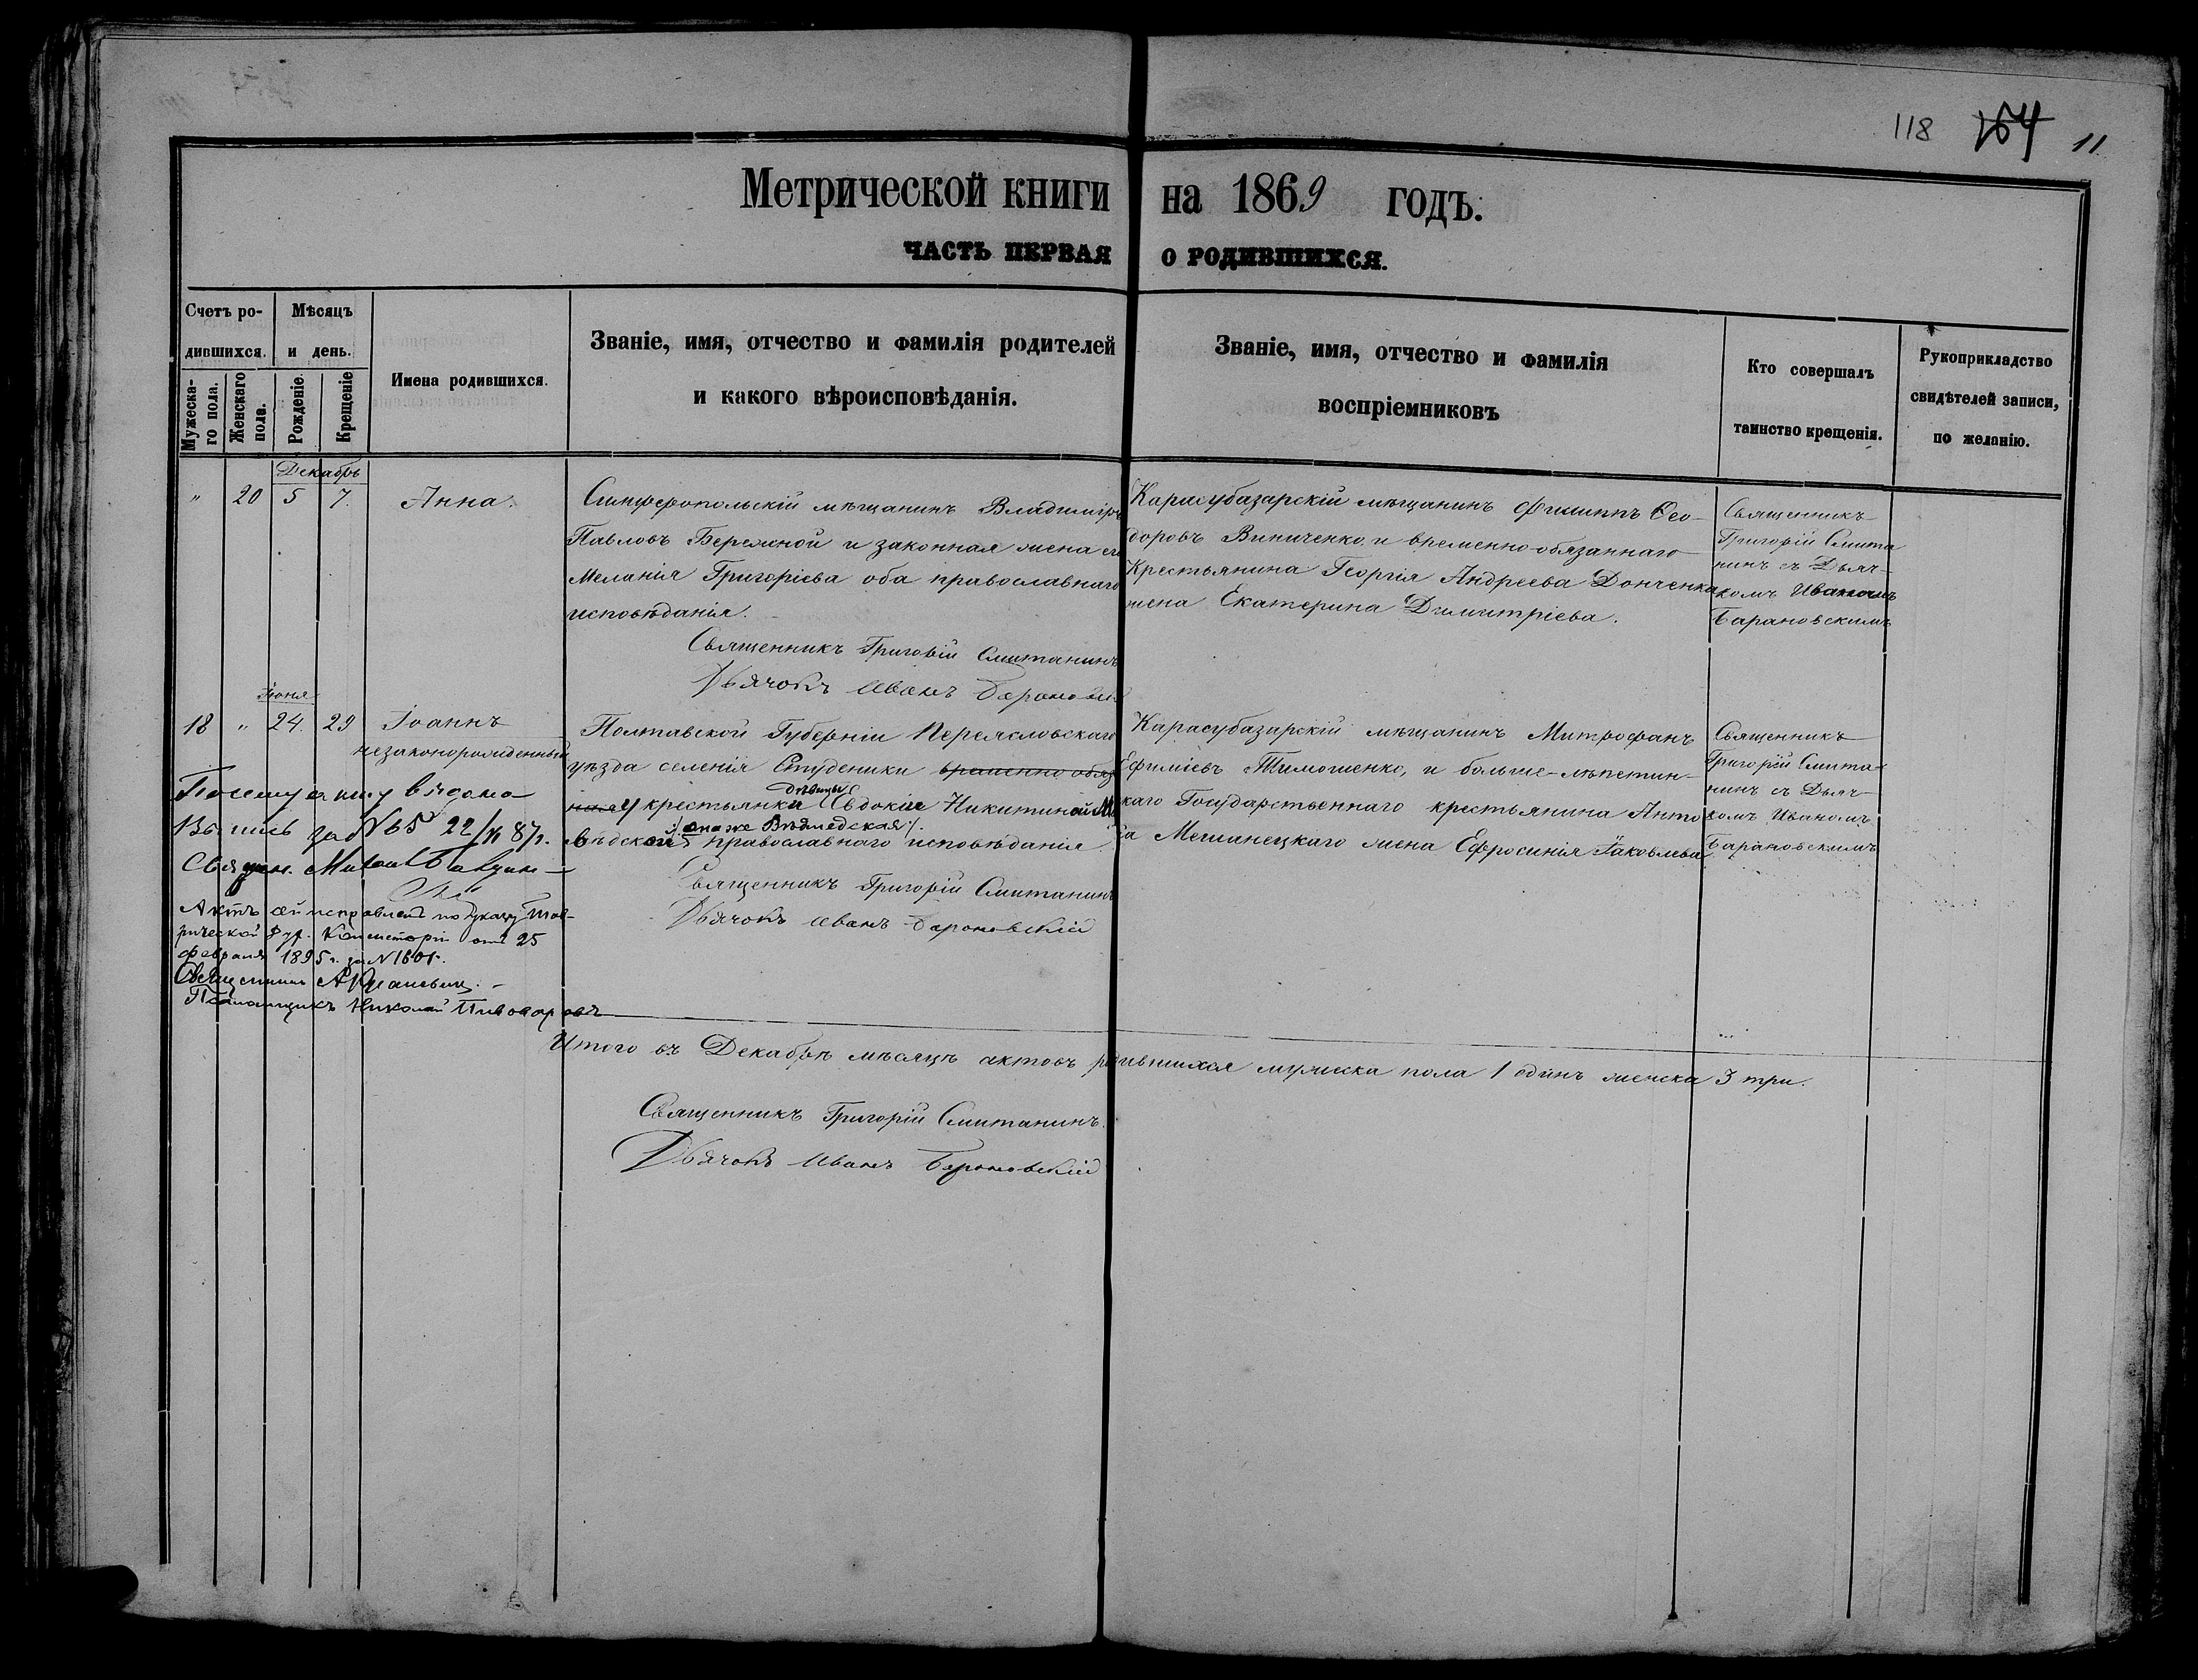 118 164 11
Метрической книги на 1869 годъ.
ЧАСТЬ ПЕРВАЯ О РОДИВШИХСЯ.
Счетъ ро-
дившихся.
Мужеска-
го пола.
Женскаго
пола.
Мѣсяцъ
и день.
Рожденіе.
Крещеніе
Имена родившихся.
Званіе, имя, отчество и фамилія родителей
и какого вѣроисповѣданія.
Званіе, имя, отчество и фамилія
воспріемниковъ
Кто совершалъ
таинство крещенія.
Рукоприкладство
свидѣтелей записи,
по желанію.
Декабрь
" 20 5 7. Анна.
Симферопольскій мѣщанинъ Владиміръ
Павловъ Бережной и законная жена его
Меланія Григоріева оба православнаго
исповѣданія.
Священникъ Григорій Смитанинъ
Дьячокъ Иванъ Барановскій
Карасубазарскій мѣщанинъ Филиппъ Ѳео-
доровъ Виниченко, и временно-обязаннаго
Крестьянина Георгія Андреева Донченка
жена Екатерина Димитріева.
Священникъ
Григорій Смита
нинъ съ Дьяч-
комъ Иваномъ
Барановскимъ
Іюня
18 " 24. 29 Іоаннъ
незаконорожденный
Полтавской Губерніи Переясловскаго
уѣзда селенія Студеники временно обяз
ной у крестьянки дѣвицы Евдокіи Никитиной
вѣдской онаже Вѣдмедская православнаго исповѣданія
Священникъ Григорій Смитанинъ
Дьячокъ Иванъ Барановскій
Карасубазарскій мѣщанинъ Митрофанъ
Ефиміевъ Тимошенко, и больше-лѣпетин-
скаго Государственнаго крестьянина Анто
на Мешанецкаго жена Ефросинія Іаковлева
Священникъ
Григорій Смита-
нинъ съ Дьяч-
комъ Иваномъ
Барановскимъ
По сему акту выдана
Выпись за №65 22/ 87г.
Священ.
Актъ сей исправленъ по Указу Тав-
рической Дух. Консисторіи отъ 25
Февраля 1895 г. за №1601.
Священникъ
Псаломщикъ Николай Пивоваровъ
Итого въ Декабрѣ мѣсяцѣ актовъ родившихся мужеска пола 1 одинъ женска 3 три.
Священникъ Григорій Смитанинъ.
Дьячокъ Иванъ Барановскій